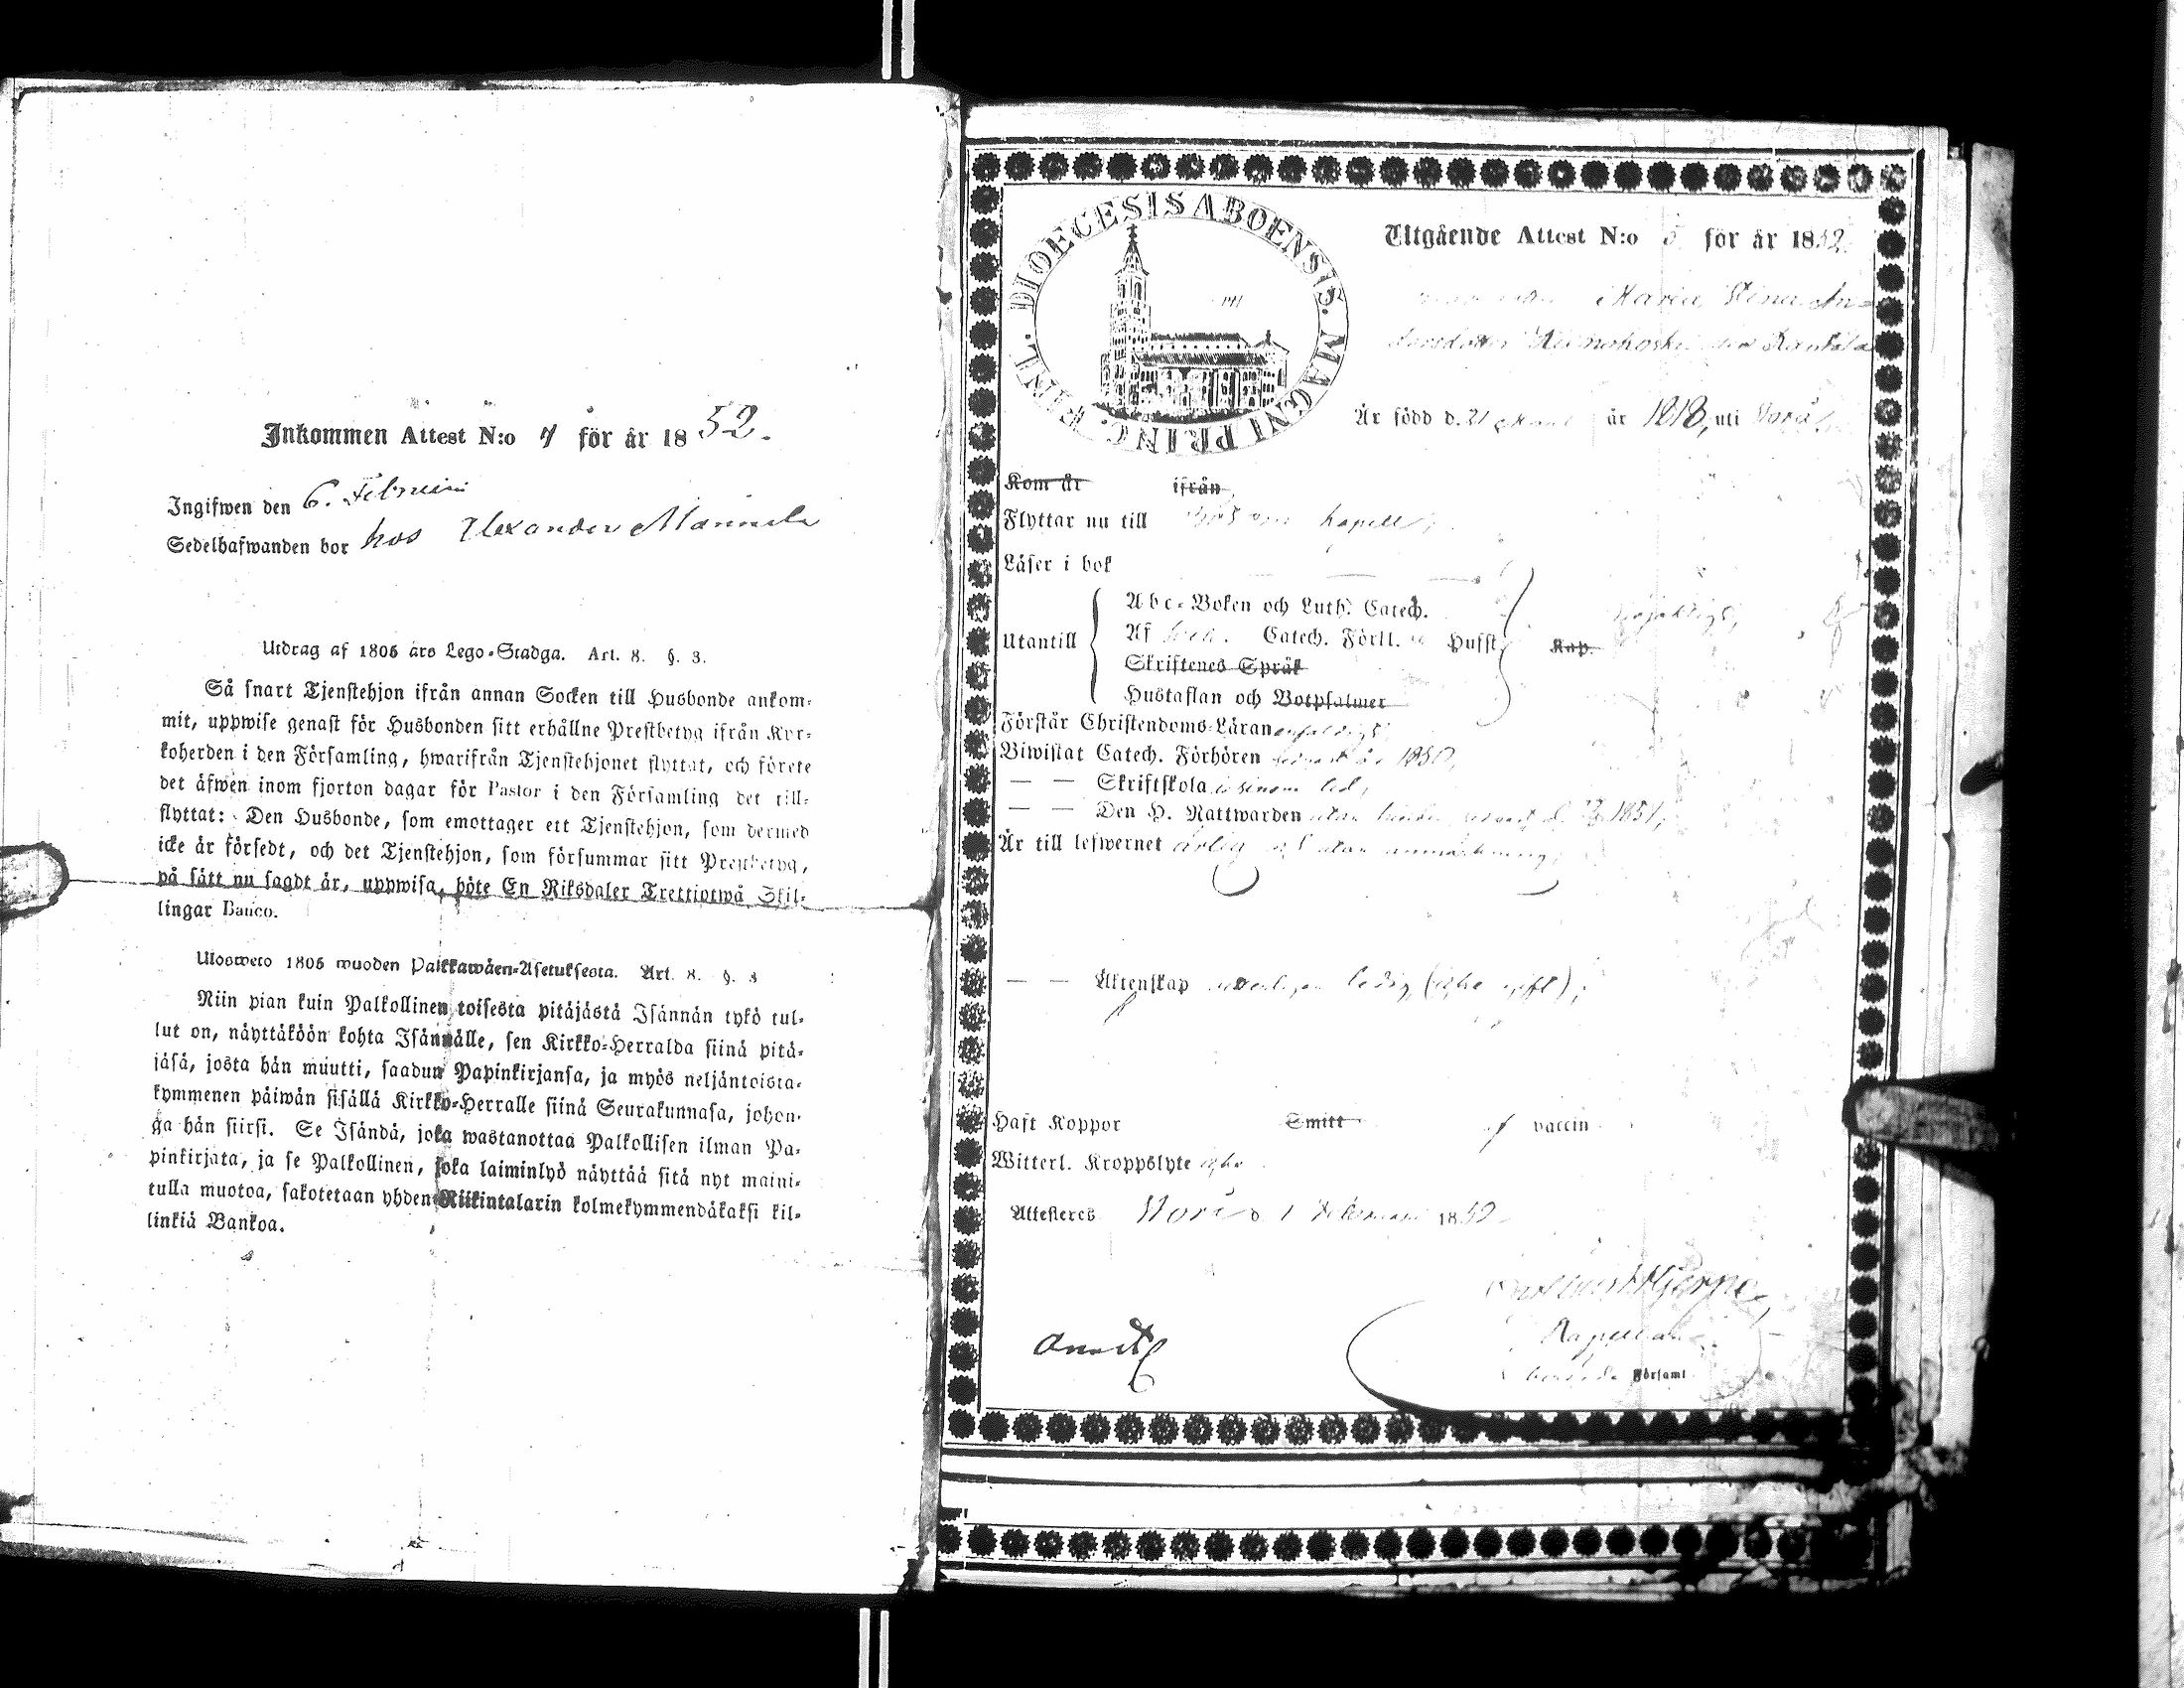 Inkommen Attest N:o 4 för år 1852.
Ingifwen den 6. Februari
Sedelhafwanden bor hos Alexander Mannila
Utdrag af 1805 års Lego-Stadga. Art. 8. §. 3.
Så snart Tjenstehjon ifrån annan Socken till Husbonde ankom-
mit, uppwise genast för Husbonden sitt erhållne Prestbetyg ifrån Kyr-
koherden i den Församling, hwarifrån Tjenstehjonet flyttat, och förete
det äfwen inom fjorton dagar för Pastor i den Församling det till-
flyttat: Den Husbonde, som emottager ett Tjenstehjon, som dermed
icke är försedt, och det Tjenstehjon, som försummar sitt Prestbetyg,
på sätt nu sagdt är, uppwisa, böte En Riksdaler Trettiotwå Skil-
lingar Banco.
Ulosweto 1805 wuoden Palkkawäen-Asetuksesta. Art. 8. §. 3
Niin pian kuin Palkollinen toisesta pitäjästä Isännän tykö tul-
lut on, näyttäköön kohta Isännälle, sen Kirkko-Herralda siinä pitä-
jäsä, josta hän muutti, saadun Papinkirjansa, ja myös neljäntoista-
kymmenen päiwän sisällä Kirkko-Herralle siinä Seurakunnasa, johon-
ga hän siirsi. Se Isändä, joka wastanottaa Palkollisen ilman Pa-
pinkirjata, ja se Palkollinen, joka laiminlyö näyttää sitä nyt maini-
tulla muotoa, sakotetaan yhden Riikintalarin kolmekymmendäkaksi kil-
linkiä Bankoa.
DIOECESIS ABOENSIS. MAGNI PRINC. FINL.
Utgående Attest N:o 5 för år 1852.
Maria Stina An-
dersdotter Kantola
Är född d. 21 år 1818, uti Norå
Kom år ifrån
Flyttar nu till kapell,
Läser i bok
Utantill
Abc-Boken och Luth. Catech.
Af Catech. Förkl. Hufst. Kap.
Skriftenes Språk
Hustaflan och Botpsalmer
Förstår Christendoms-Läran enfaldigt
Biwistat Catech. Förhören senast år 1850,
— — Skriftskola i sinom tid,
— — Den H. Nattwarden utan hinder senast d. 1851,
Är till lefwernet ärlig och utan anmärkning,
— — Äktenskap ledig (icke gift);
Haft Koppor Smitt vaccin
Witterl. Kroppslyte icke
Attesteres Norå d. 1 Februari 1852
Hjerpe,
Kapellan
Församl